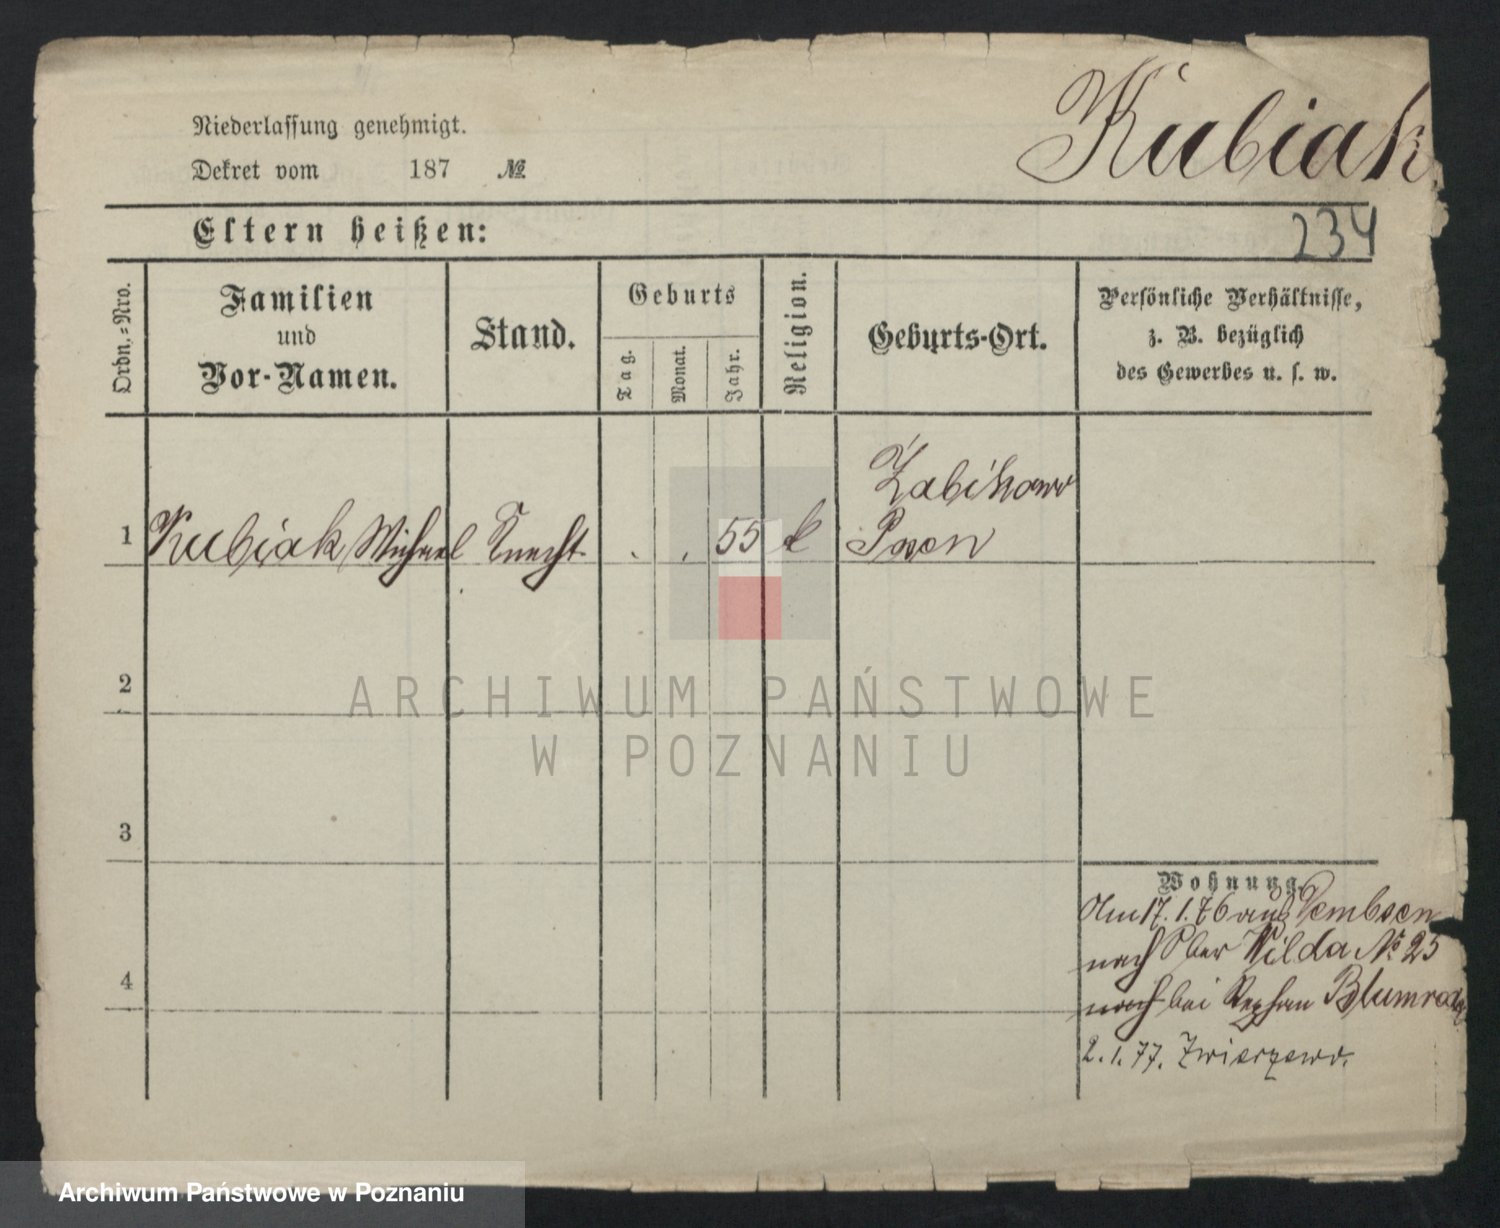 Kubiak
Niederlassung genehmigt.
Dekret vom 187 №
234
Eltern heißen:
Ordn.-Nro.
Familien
und
Vor-Namen.
Stand.
Geburts
Tag.
Monat.
Jahr.
Religion.
Geburts-Ort.
Persönliche Verhältnisse,
z. B. bezüglich
des Gewerbes u. s. w.
1 Kubiak Michael Knecht . . 55 k
Żabikowo
Posen
2
ARCHIWUM PAŃSTWOWE
W POZNANIU
3
Wohnung.
Am 17.1.76 aus Dembsen
nach Ober Wilda № 25
noch bei
2.1.77.
4
Archiwum Państwowe w Poznaniu